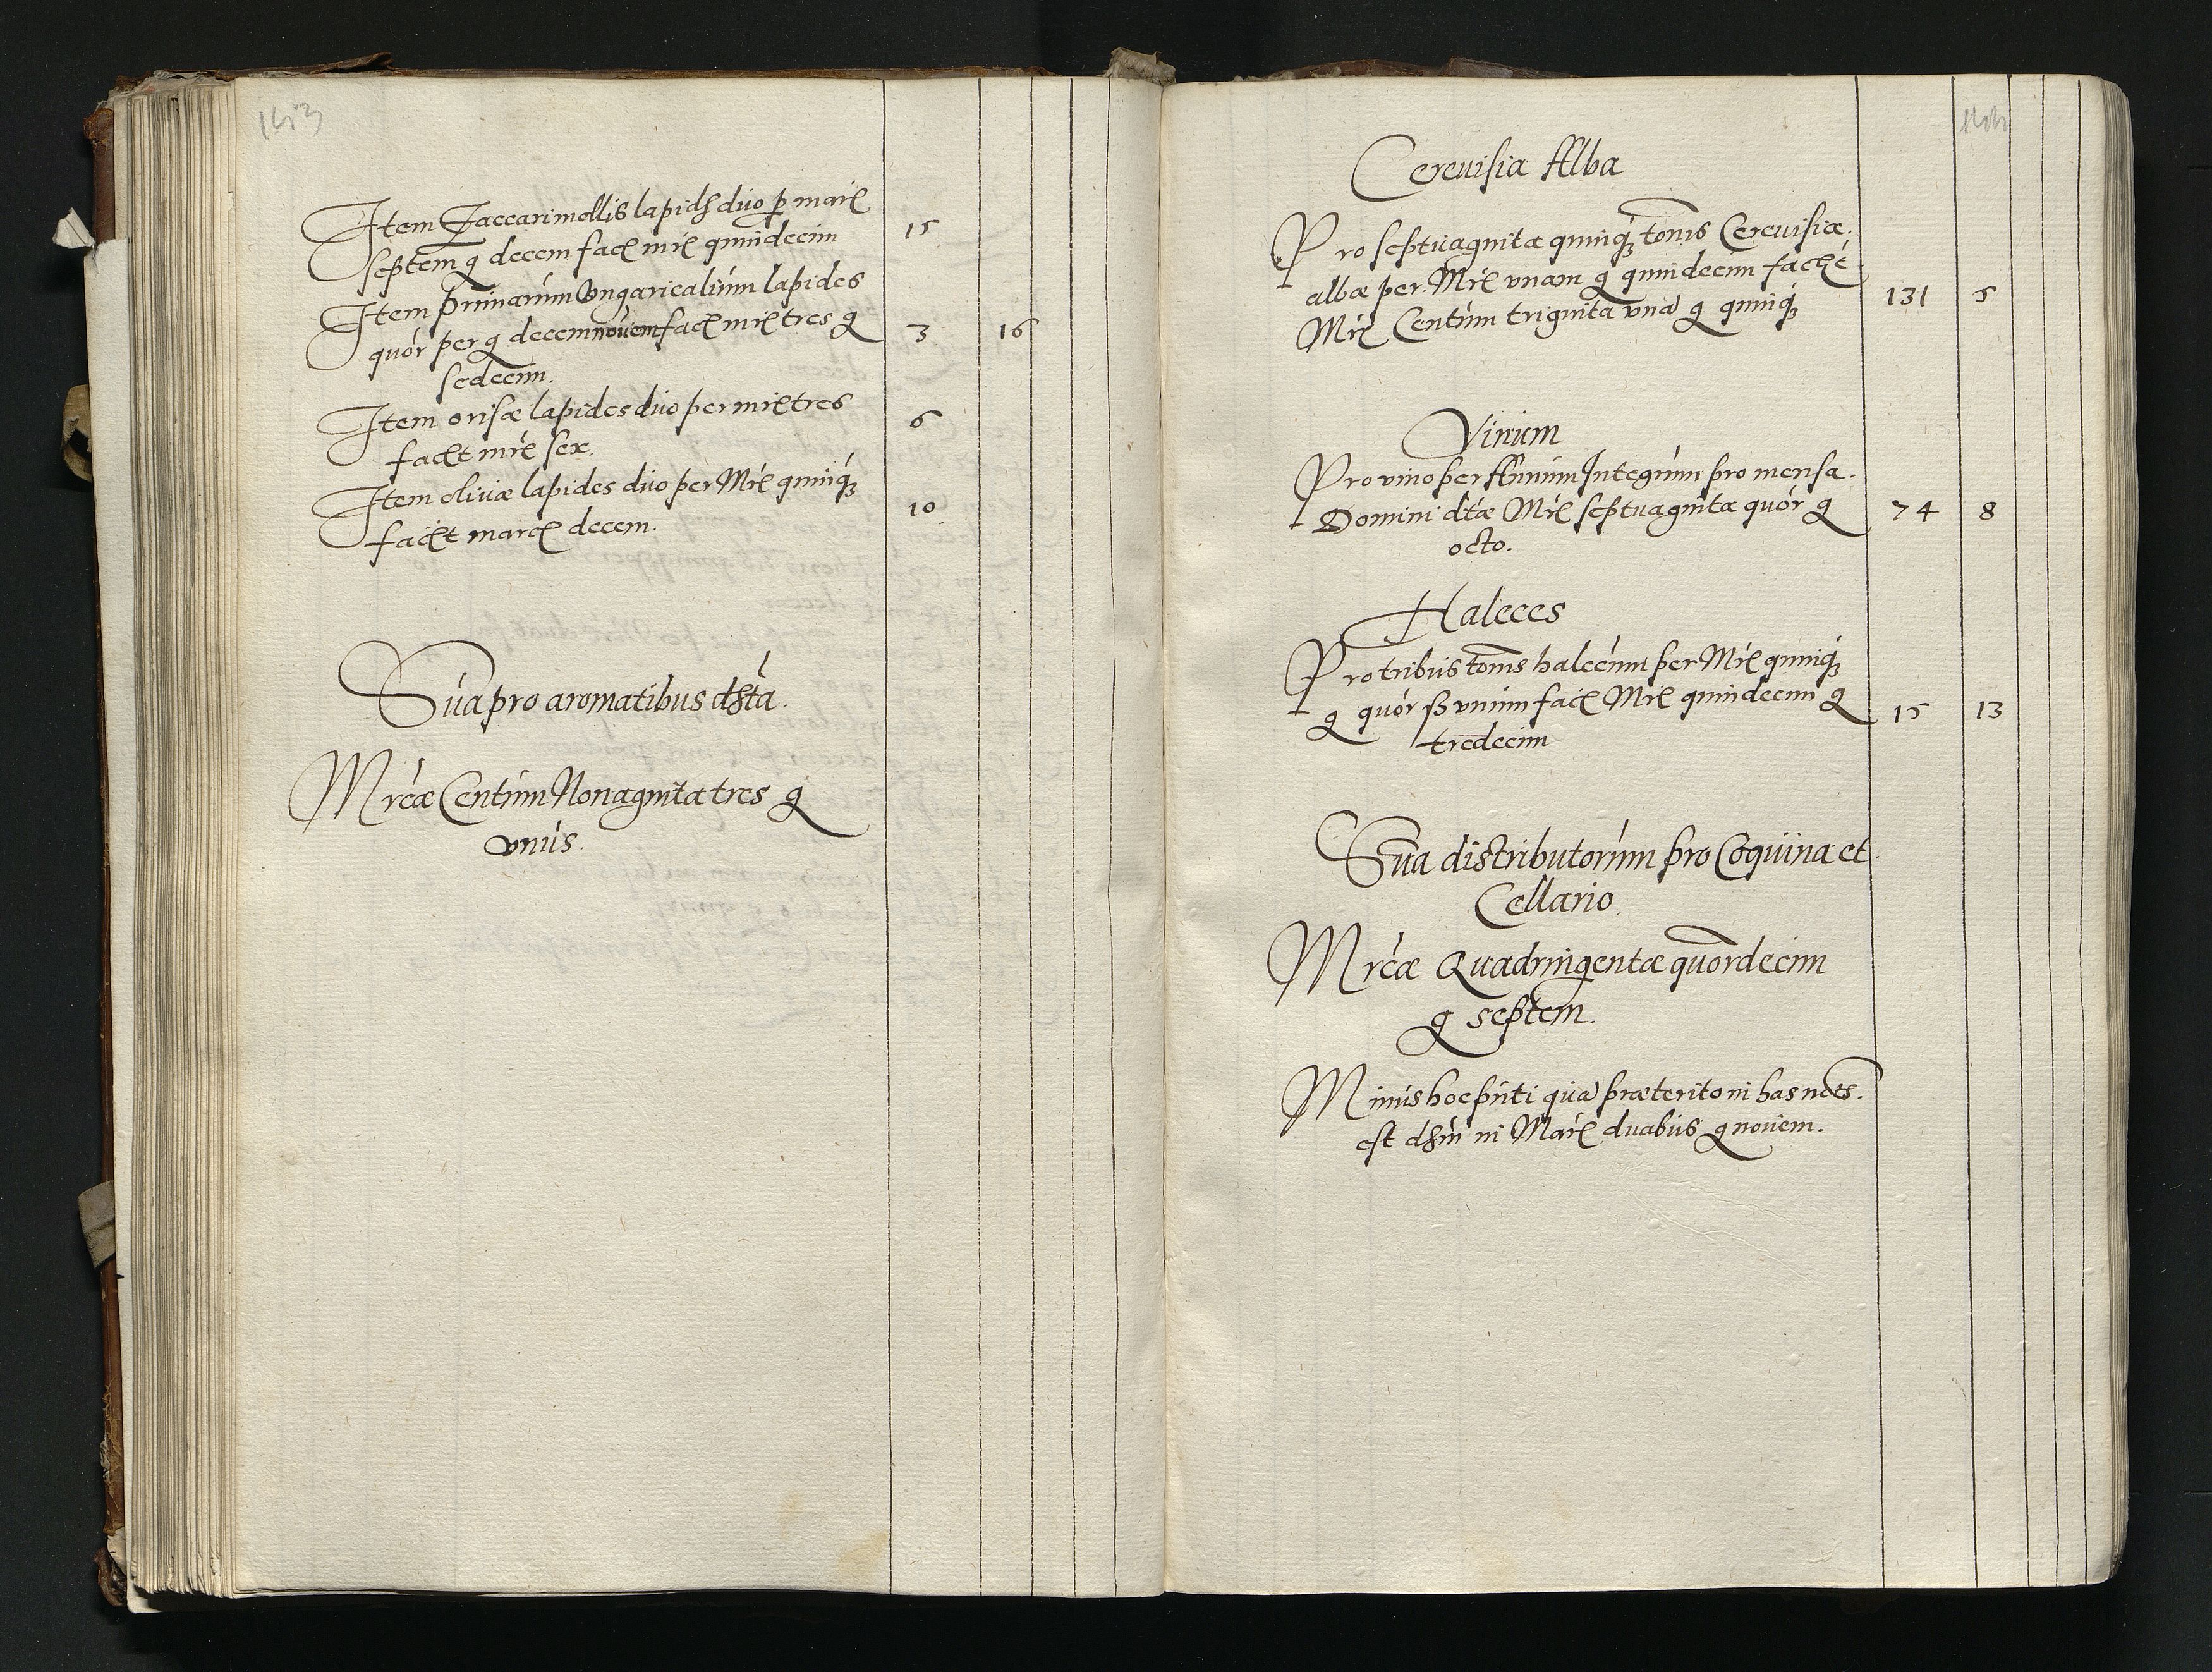 1413
Item Zaccari mellis lapides duo p marc
septem g decem fac mrc quindecim 15
Item prunarum Ungaricalium lapides
quór per g decem novem fac mrc tres g 3 16
sedecim.
Item orisæ lapides duo per mrc tres 6
facit mrc sex.
Item olivæ lapides duo per Mrc quinq 10
faciút marc decem.
Sũa pro aromatibus dista.
Mrcæ Centum Nonaginta tres g
unús.
Cerevisia Alba
Pro septuaginta quinq tonis Cerevisiæ
albæ per Mrc unam g quindecim
Mrc Centum triginta una g quinq 131 5
Vinum
Pro vino per Annum Integrum pro mensa
Domini dtæ Mrc septuaginta quór g 74 8
octo.
Haleces
Pro tribus tonis halecum per Mrc quinq
g quór ß unum fac Mrc quindecim g 15 13
tredecim
Sũa distributorum pro Coquina et
Cellario.
Mrcæ Quadringentæ quordecim
g septem.
Minus hoc pnti qua præterito in has ncts.
est in Marc duabus g novem.